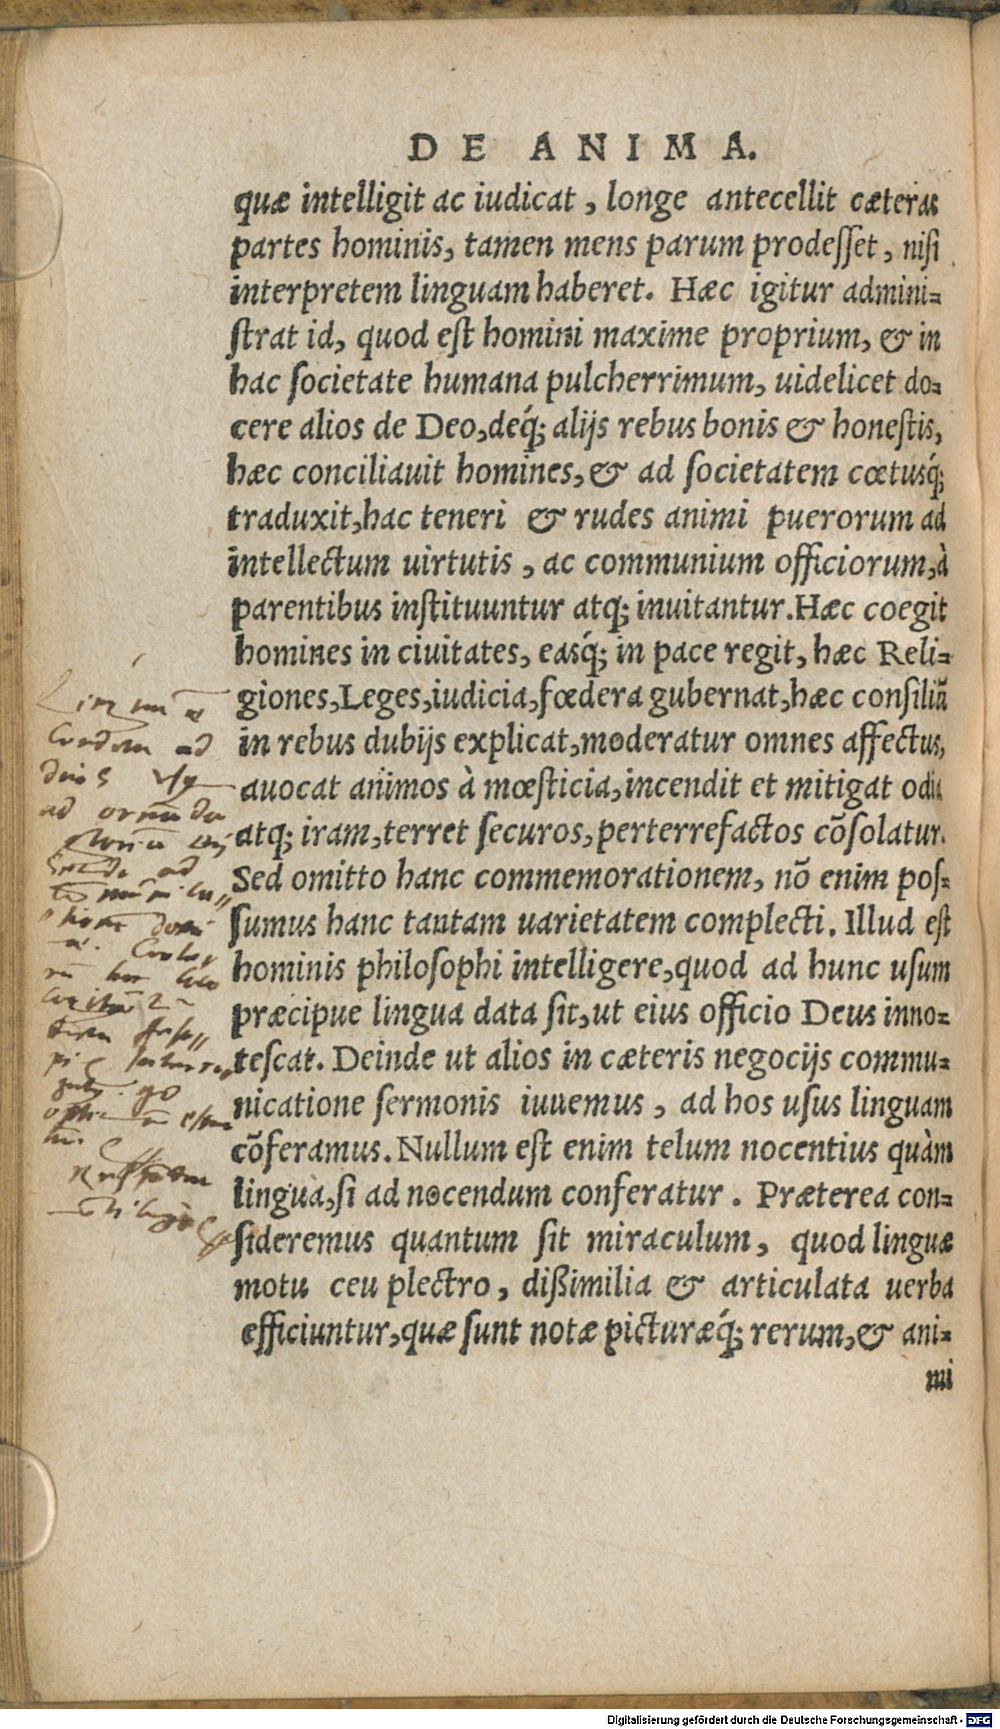 DE ANIMA.
quæ intelligit ac iudicat, longe antecellit cæteras
partes hominis, tamen mens parum prodeſſet, niſi
interpretem linguam haberet. Hæc igitur admini⸗
ſtrat id, quod eſt homini maxime proprium, & in
hac ſocietate humana pulcherrimum, uidelicet do⸗
cere alios de Deo, deq́; alijs rebus bonis & honeſtis,
hæc conciliauit homines, & ad ſocietatem cœtusq́;
traduxit, hac teneri & rudes animi puerorum ad
intellectum uirtutis, ac communium officiorum, à
parentibus inſtituuntur atq; inuitantur. Hæc coegit
homines in ciuitates, easq́; in pace regit, hæc Reli⸗
giones, Leges, iudicia, fœdera gubernat, hæc conſiliũ
in rebus dubijs explicat, moderatur omnes affectus,
auocat animos à mœſticia, incendit et mitigat odia
atq; iram, terret ſecuros, perterrefactos cõſolatur.
Sed omitto hanc commemorationem, nõ enim poſ⸗
ſumus hanc tantam uarietatem complecti. Illud eſt
hominis philoſophi intelligere, quod ad hunc uſum
præcipue lingua data ſit, ut eius officio Deus inno⸗
teſcat. Deinde ut alios in cæteris negocijs commu⸗
nicatione ſermonis iuuemus, ad hos uſus linguam
cõferamus. Nullum eſt enim telum nocentius quàm
lingua, ſi ad nocendum conferatur. Præterea con⸗
ſideremus quantum ſit miraculum, quod linguæ
motu ceu plectro, dißimilia & articulata uerba
efficiuntur, quæ ſunt notæ picturæq́; rerum, & ani⸗
mi
Digitalisierung gefördert durch die Deutsche Forschungsgemeinschaft - DFG